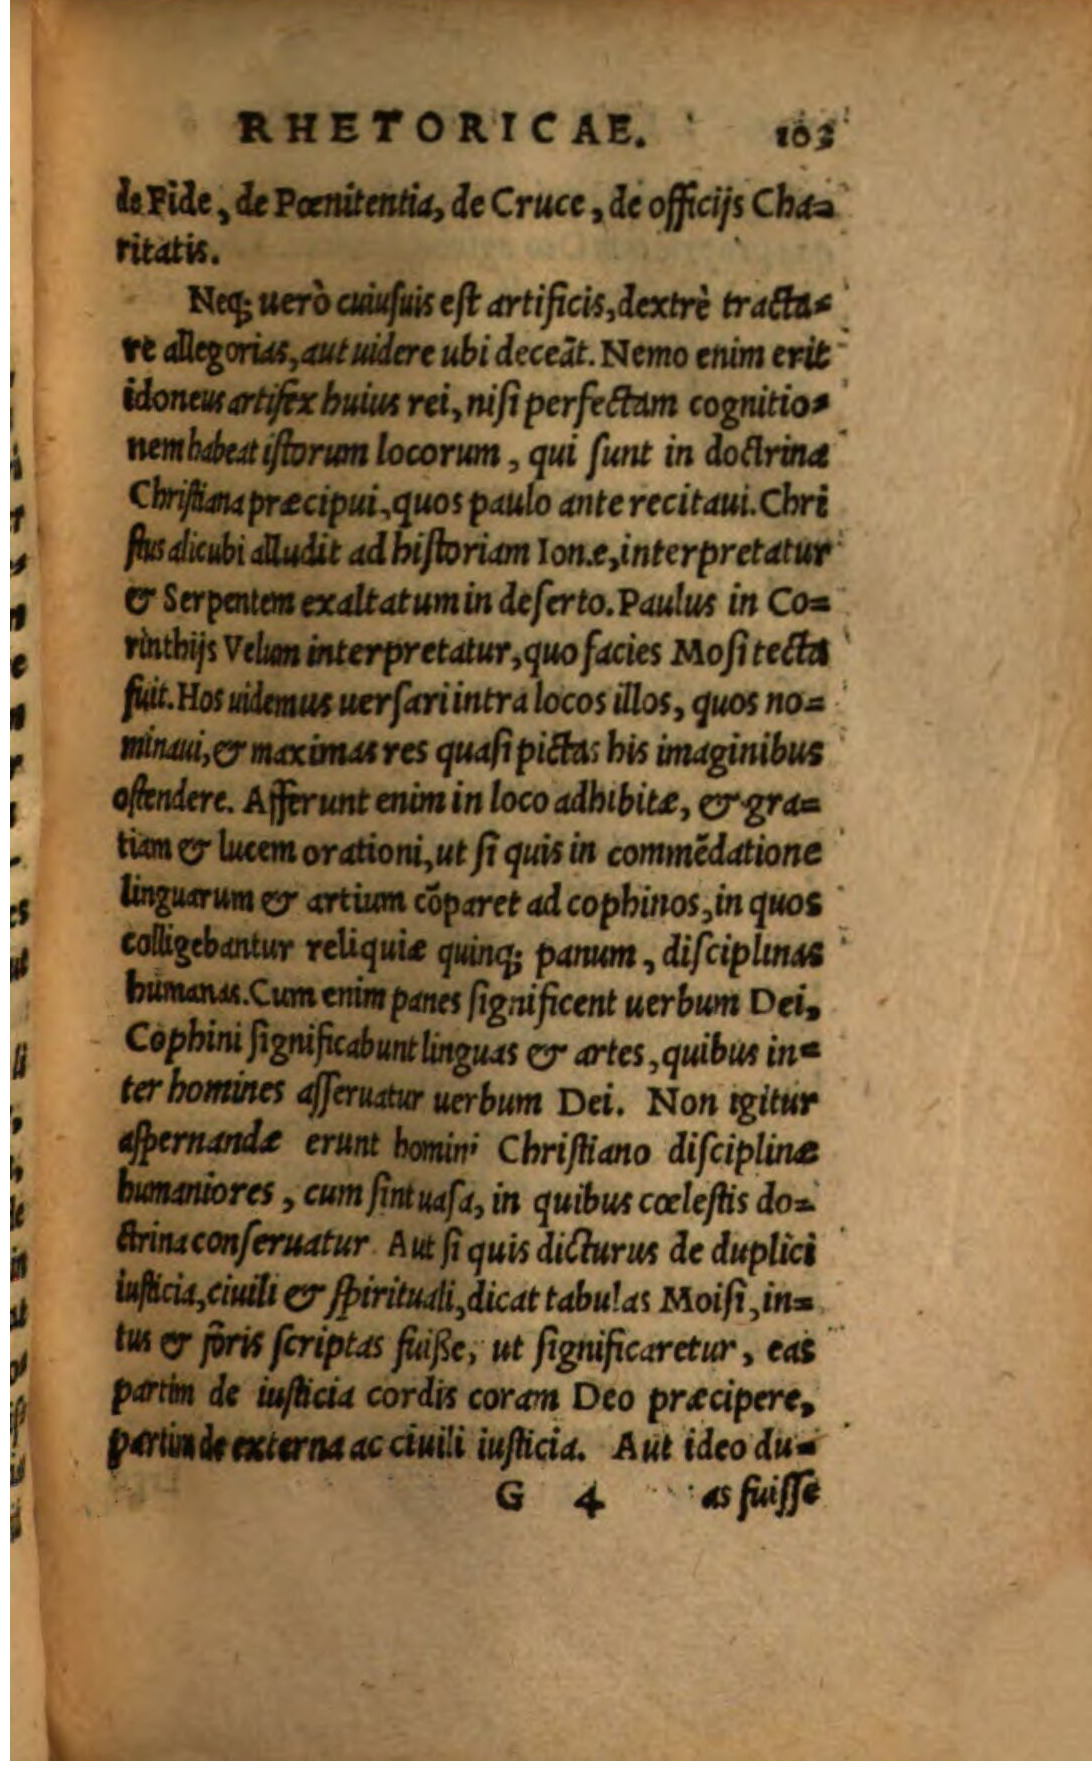 RHETORICAE. 103
de Fide, de Pœnitentia, de Cruce, de officijs Cha=
ritatis.
Neq; uerò cuiuſuis eſt artificis, dextrè tracta=
re allegorias, aut uidere ubi deceāt. Nemo enim erit
idoneus artifex huius rei, niſi perfectam cognitio=
nem habeat iſtorum locorum, qui ſunt in doctrina
Chriſtiana præcipui, quos paulo ante recitaui. Chri
ſtus alicubi alludit ad hiſtoriam Ionæ, interpretatur
& Serpentem exaltatum in deſerto. Paulus in Co=
rinthijs Velum interpretatur, quo facies Moſi tecta
fuit. Hos uidemus uerſari intra locos illos, quos no=
minaui, & maximas res quaſi pictas his imaginibus
oſtendere. Afferunt enim in loco adhibitæ, & gra=
tiam & lucem orationi, ut ſi quis in commēdatione
linguarum & artium cōparet ad cophinos, in quos
colligebantur reliquiæ quinq; panum, diſciplinas
humanas. Cum enim panes ſignificent uerbum Dei,
Cophini ſignificabunt linguas & artes, quibus in=
ter homines aſſeruatur uerbum Dei. Non igitur
aſpernandæ erunt homini Chriſtiano diſciplinæ
humaniores, cum ſint uaſa, in quibus cœleſtis do=
ctrina conſeruatur. Aut ſi quis dicturus de duplici
iuſticia, ciuili & ſpirituali, dicat tabulas Moiſi, in=
tus & foris ſcriptas fuiſſe, ut ſignificaretur, eas
partim de iuſticia cordis coram Deo præcipere,
partim de externa ac ciuili iuſticia. Aut ideo du=
G 4 as fuiſſe